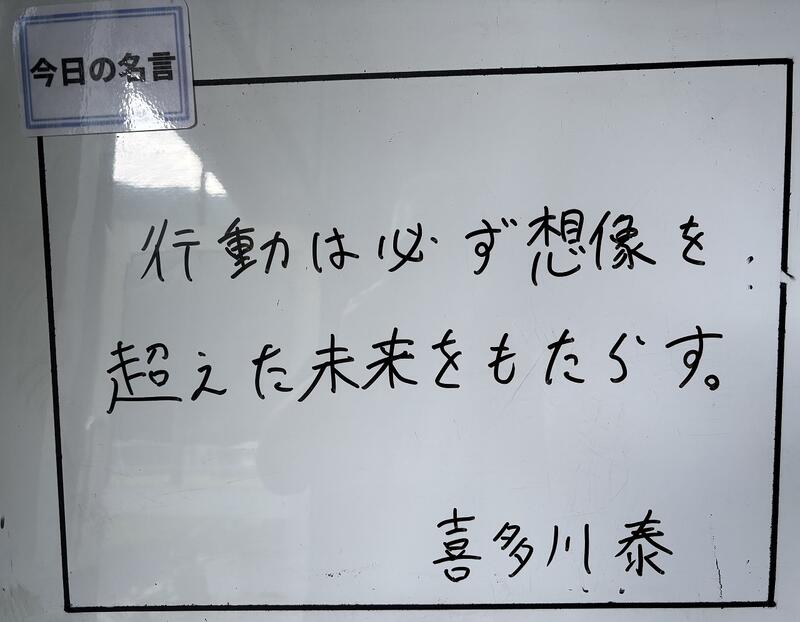 今日の名言
行動は必ず想像を
超えた未来をもたらす。
喜多川泰